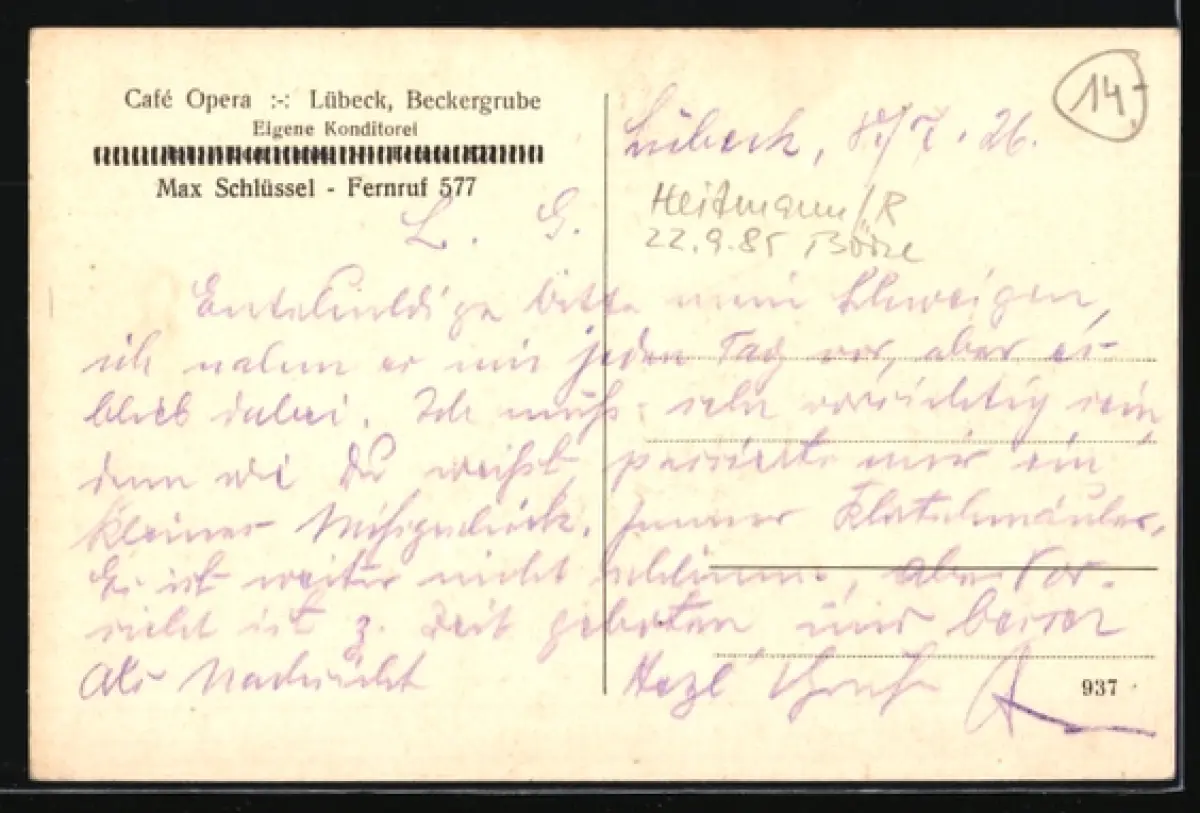 Café Opera :-: Lübeck, Beckergrube
Eigene Konditorei
Max Schlüssel - Fernruf 577
14.-
Lübeck, 8/7.26.
Heitmann/R
22.9.85 Börse
L. G.
Entschuldige bitte mein Schweigen,
ich nahm es mir jeden Tag vor, aber es
blieb dabei. Ich muß sehr vorsichtig sein,
denn wie Du weißt, passierte mir ein
kleines Mißgeschick. Immer Klatschmäuler.
Es ist weiter nicht schlimm, aber Vor-
sicht ist z. Zeit geboten und besser
als Nachsicht Herzl Gruß
937